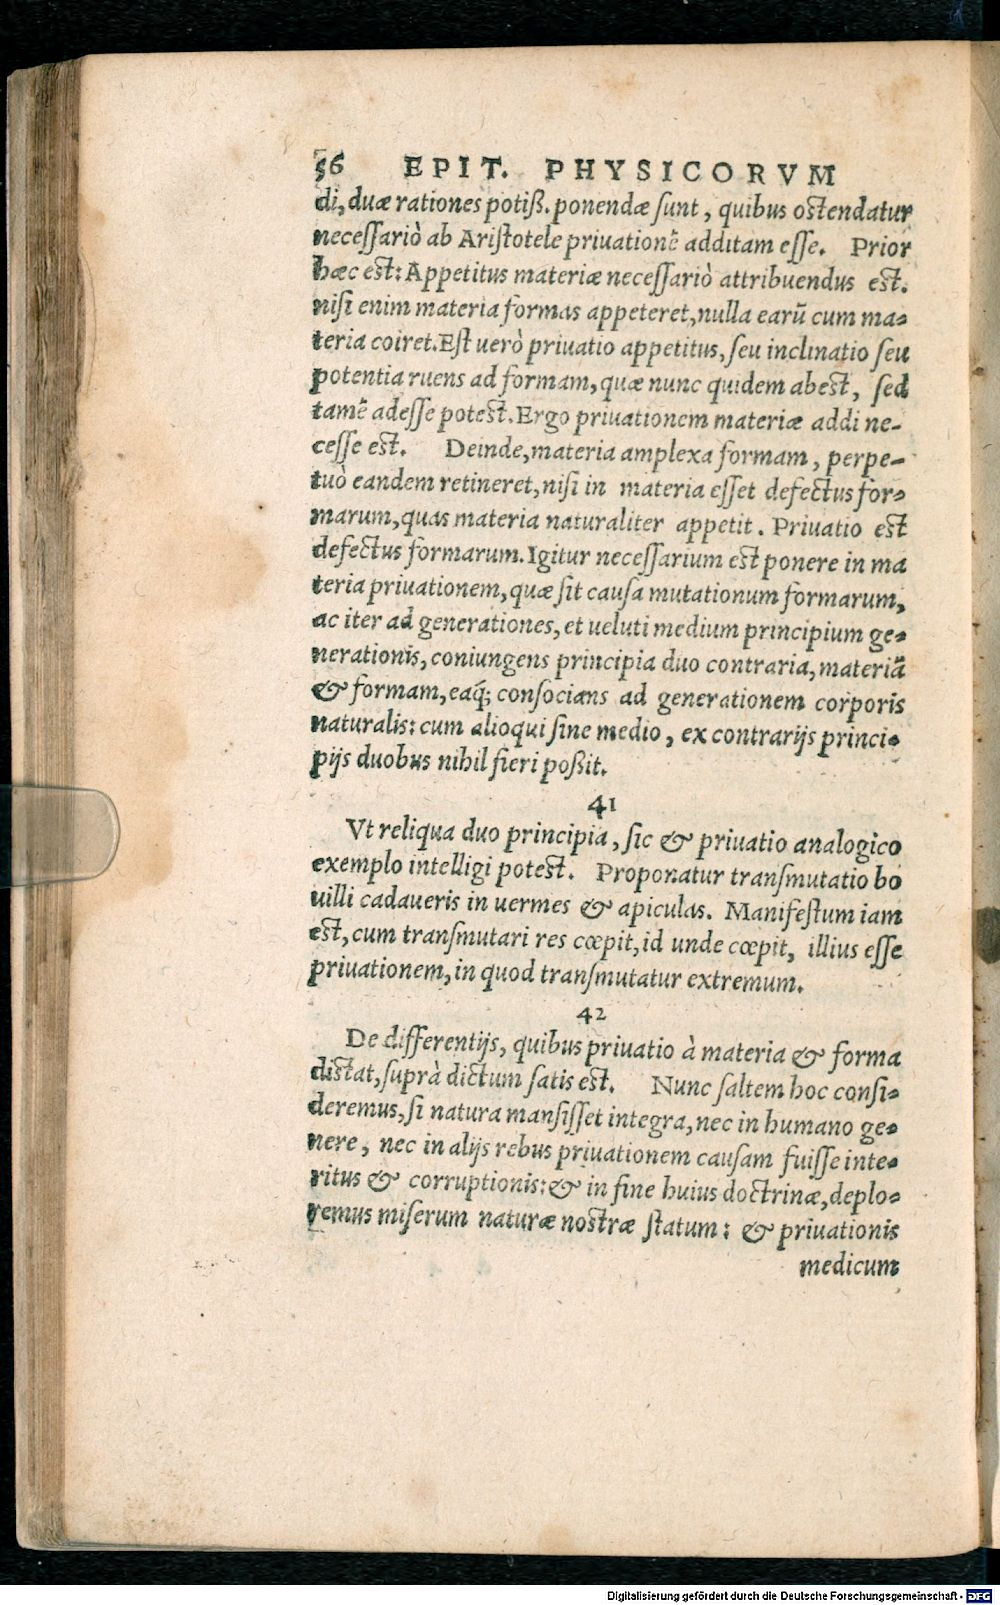 56 EPIT. PHYSICORVM
di, duæ rationes potiß. ponendæ sunt, quibus ostendatur
necessariò ab Aristotele priuationẽ additam esse. Prior
hæc est: Appetitus materiæ necessariò attribuendus est.
nisi enim materia formas appeteret, nulla earũ cum ma-
teria coiret. Est uerò priuatio appetitus, seu inclinatio seu
potentia ruens ad formam, quæ nunc quidem abest, sed
tamẽ adesse potest. Ergo priuationem materiæ addi ne-
cesse est. Deinde, materia amplexa formam, perpe-
tuò eandem retineret, nisi in materia esset defectus for-
marum, quas materia naturaliter appetit. Priuatio est
defectus formarum. Igitur necessarium est ponere in ma
teria priuationem, quæ sit causa mutationum formarum,
ac iter ad generationes, et ueluti medium principium ge-
nerationis, coniungens principia duo contraria, materiã
& formam, eaq́; consocians ad generationem corporis
naturalis: cum alioqui sine medio, ex contrarijs princi-
pijs duobus nihil fieri poßit.
41
Vt reliqua duo principia, sic & priuatio analogico
exemplo intelligi potest. Proponatur transmutatio bo
uilli cadaueris in uermes & apiculas. Manifestum iam
est, cum transmutari res cœpit, id unde cœpit, illius esse
priuationem, in quod transmutatur extremum.
42
De differentijs, quibus priuatio à materia & forma
distat, suprà dictum satis est. Nunc saltem hoc consi-
deremus, si natura mansisset integra, nec in humano ge-
nere, nec in alijs rebus priuationem causam fuisse inte-
ritus & corruptionis: & in fine huius doctrinæ, deplo-
remus miserum naturæ nostræ statum: & priuationis
medicum
Digitalisierung gefördert durch die Deutsche Forschungsgemeinschaft - DFG